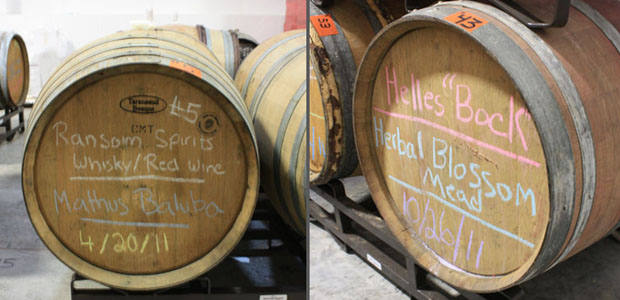 45
CMT
Ransom Spirits
Whisky/Red Wine
Mathus Baluba
4/20/11
43
Helles "Bock"
Herbal Blossom
Mead
10/26/11